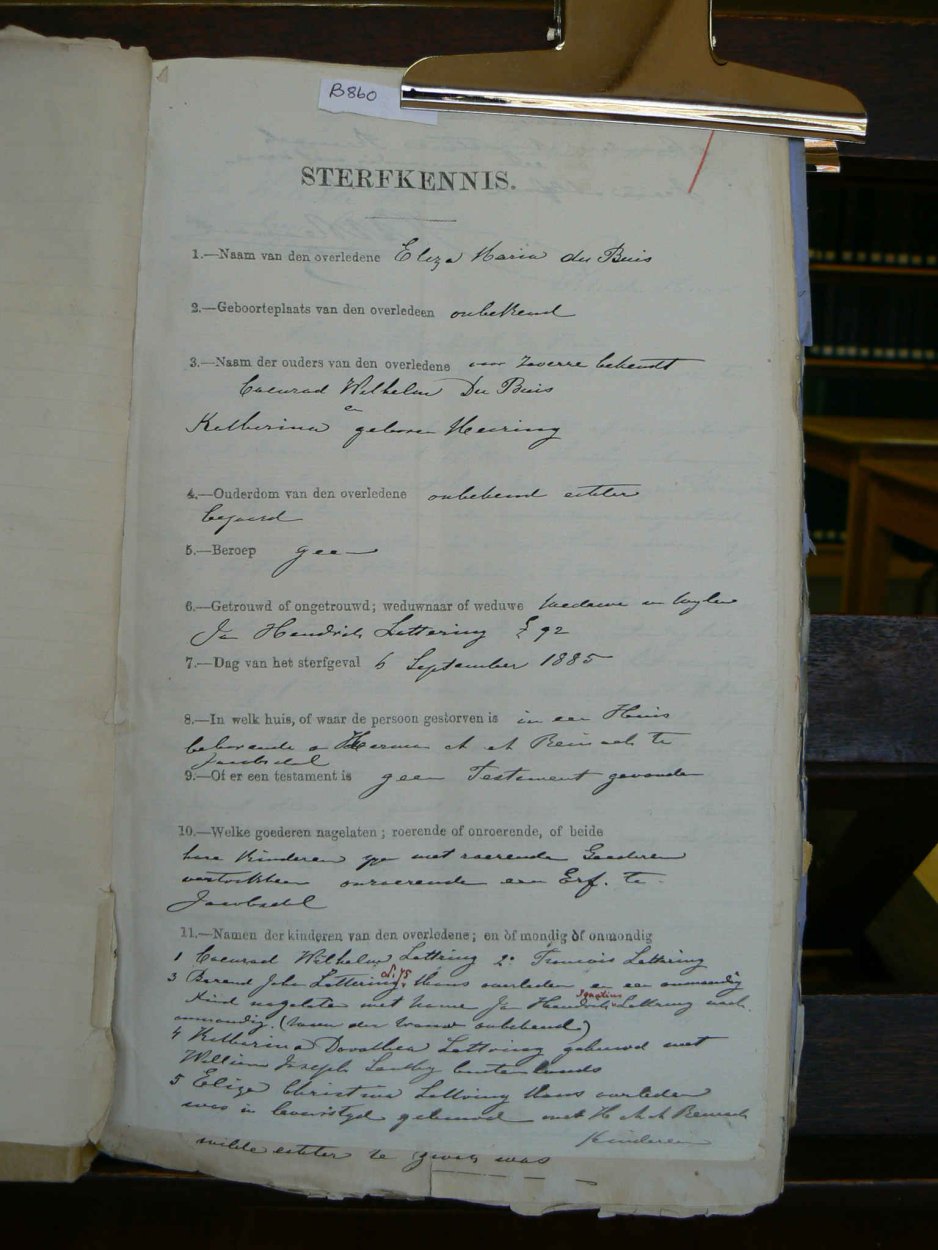 B860
STERFKENNIS.
1.—Naam van den overledene Eliza Maria du Buis
2.—Geboorteplaats van den overledeen onbekend
3.—Naam der ouders van den overledene voor Zoverre bekendt
Coenrad Wilhelm Du Buis
en
Katherina geboren Meiring
4.—Ouderdom van den overledene onbekend echter
bejaard
5.—Beroep geen
6.—Getrouwd of ongetrouwd; weduwnaar of weduwe Weduwe van wylen
Jan Hendrik Lettering
7.—Dag van het sterfgeval 6 September 1885
8.—In welk huis, of waar de persoon gestorven is in een Huis
behorende a A A te
Jacobsdal
9.—Of er een testament is geen Testament gevonden
10.—Welke goederen nagelaten; roerende of onroerende, of beide
hare Kinderen met roerende Goederen
onroerende een Erf. te
Jacobsdal
11.—Namen der kinderen van den overledene; en òf mondig òf onmondig
1 Coenrad Wilhelm Lettring 2 Francois Lettring
3 Barend John Lettering thans overleden en een onmondig
Kind nagelaten met name Jan Hendrik Ignatius Lettring
onmondig. (naam der vrouw onbekend)
4 Katharina Dorothea Lettring gehuwd met
William Joseph buitenlands
5 Eliza Christina Lettring thans overleden
was in gehuwd met H A A
Kinderen
wilde echter te was